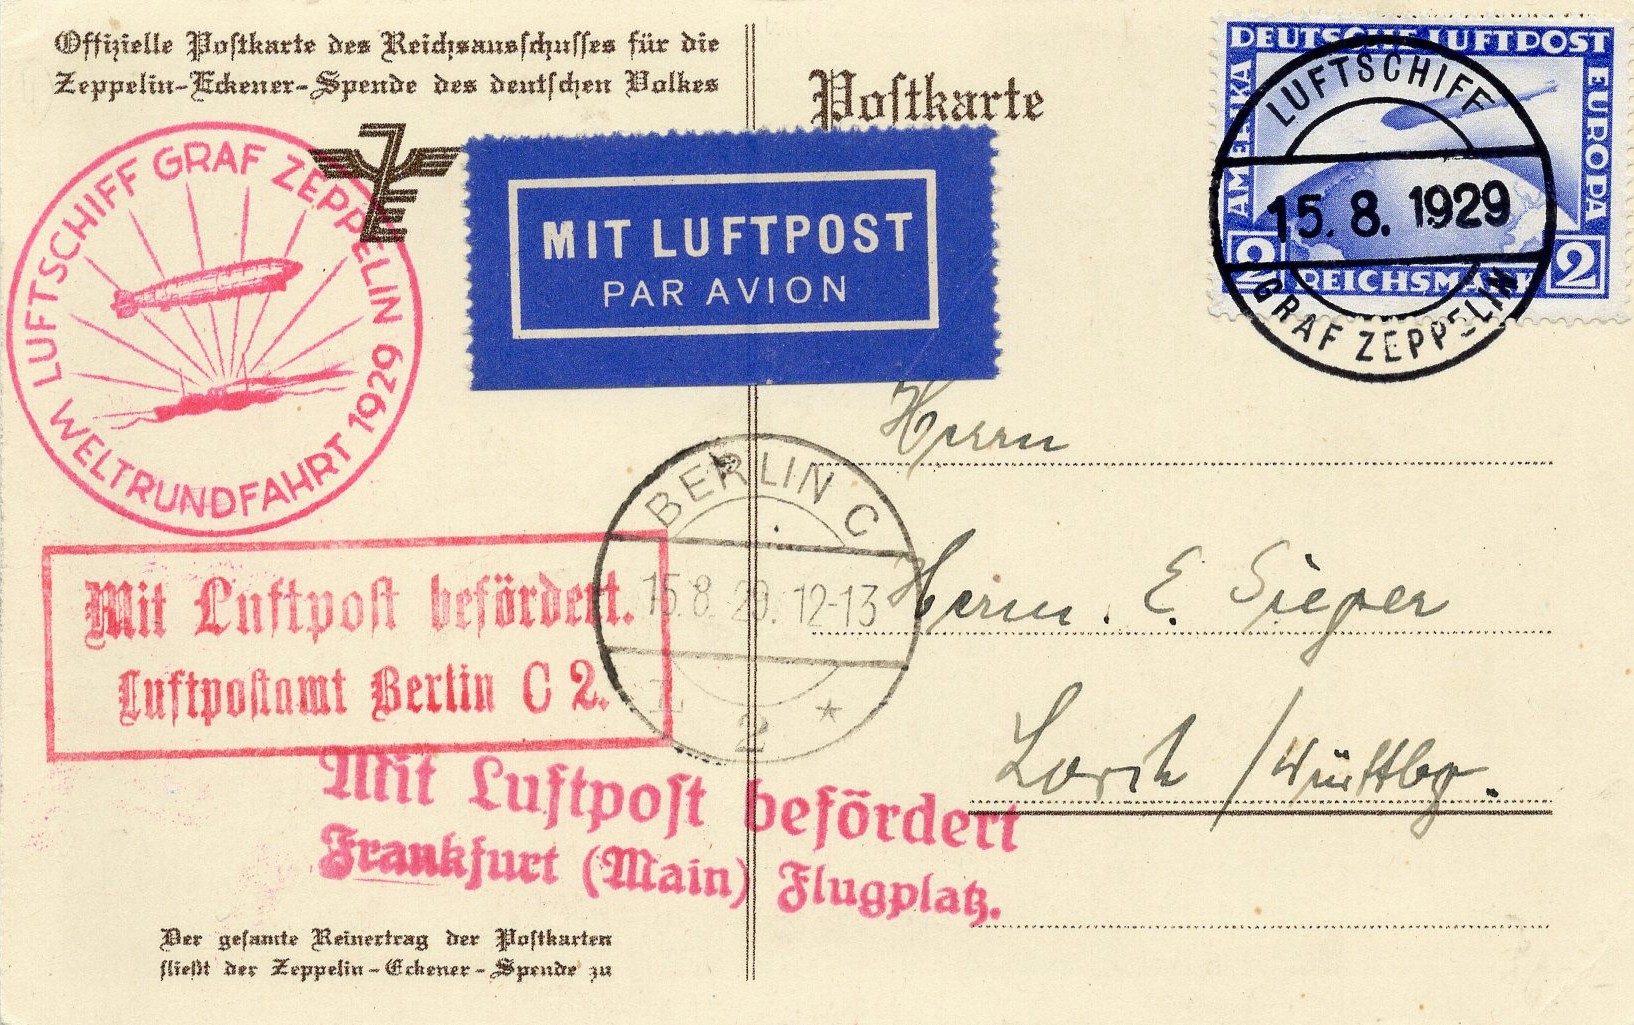 Offizielle Postkarte des Reichsausschusses für die
Zeppelin-Eckener-Spende des deutschen Volkes
Postkarte
DEUTSCHE LUFTPOST
AMERIKA
EUROPA
2 REICHSMARK 2
LUFTSCHIFF
15. 8. 1929
GRAF ZEPPELIN
LUFTSCHIFF GRAF ZEPPELIN
WELTRUNDFAHRT 1929
ZE
MIT LUFTPOST
PAR AVION
Herrn
BERLIN C
15.8.29. 12-13
2 *
Herrn. E. Sieger
Lorch / Württbg.
Mit Luftpost befördert.
Luftpostamt Berlin C 2.
Mit Luftpost befördert
Frankfurt (Main) Flugplatz.
Der gesamte Reinertrag der Postkarten
fließt der Zeppelin-Eckener-Spende zu